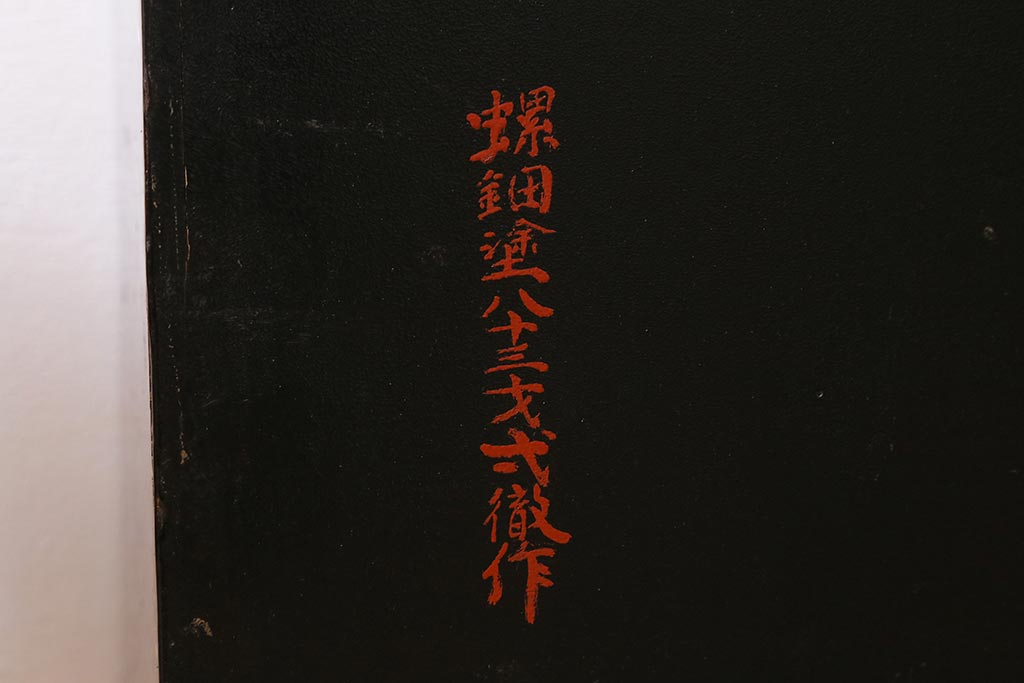 螺鈿塗八十三才弍徹作